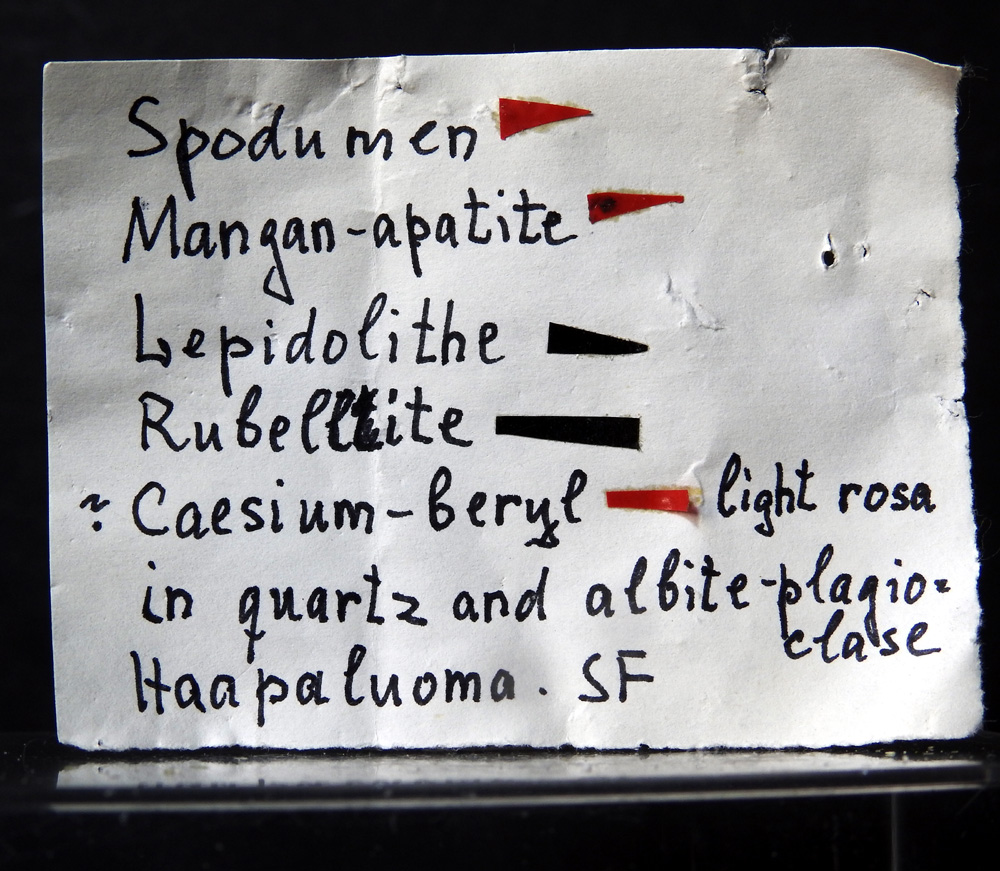 Spodumen
Mangan-apatite
Lepidolithe
Rubellite
~ Caesium-beryl light rosa
in quartz and albite-plagio=
clase
Haapaluoma. SF